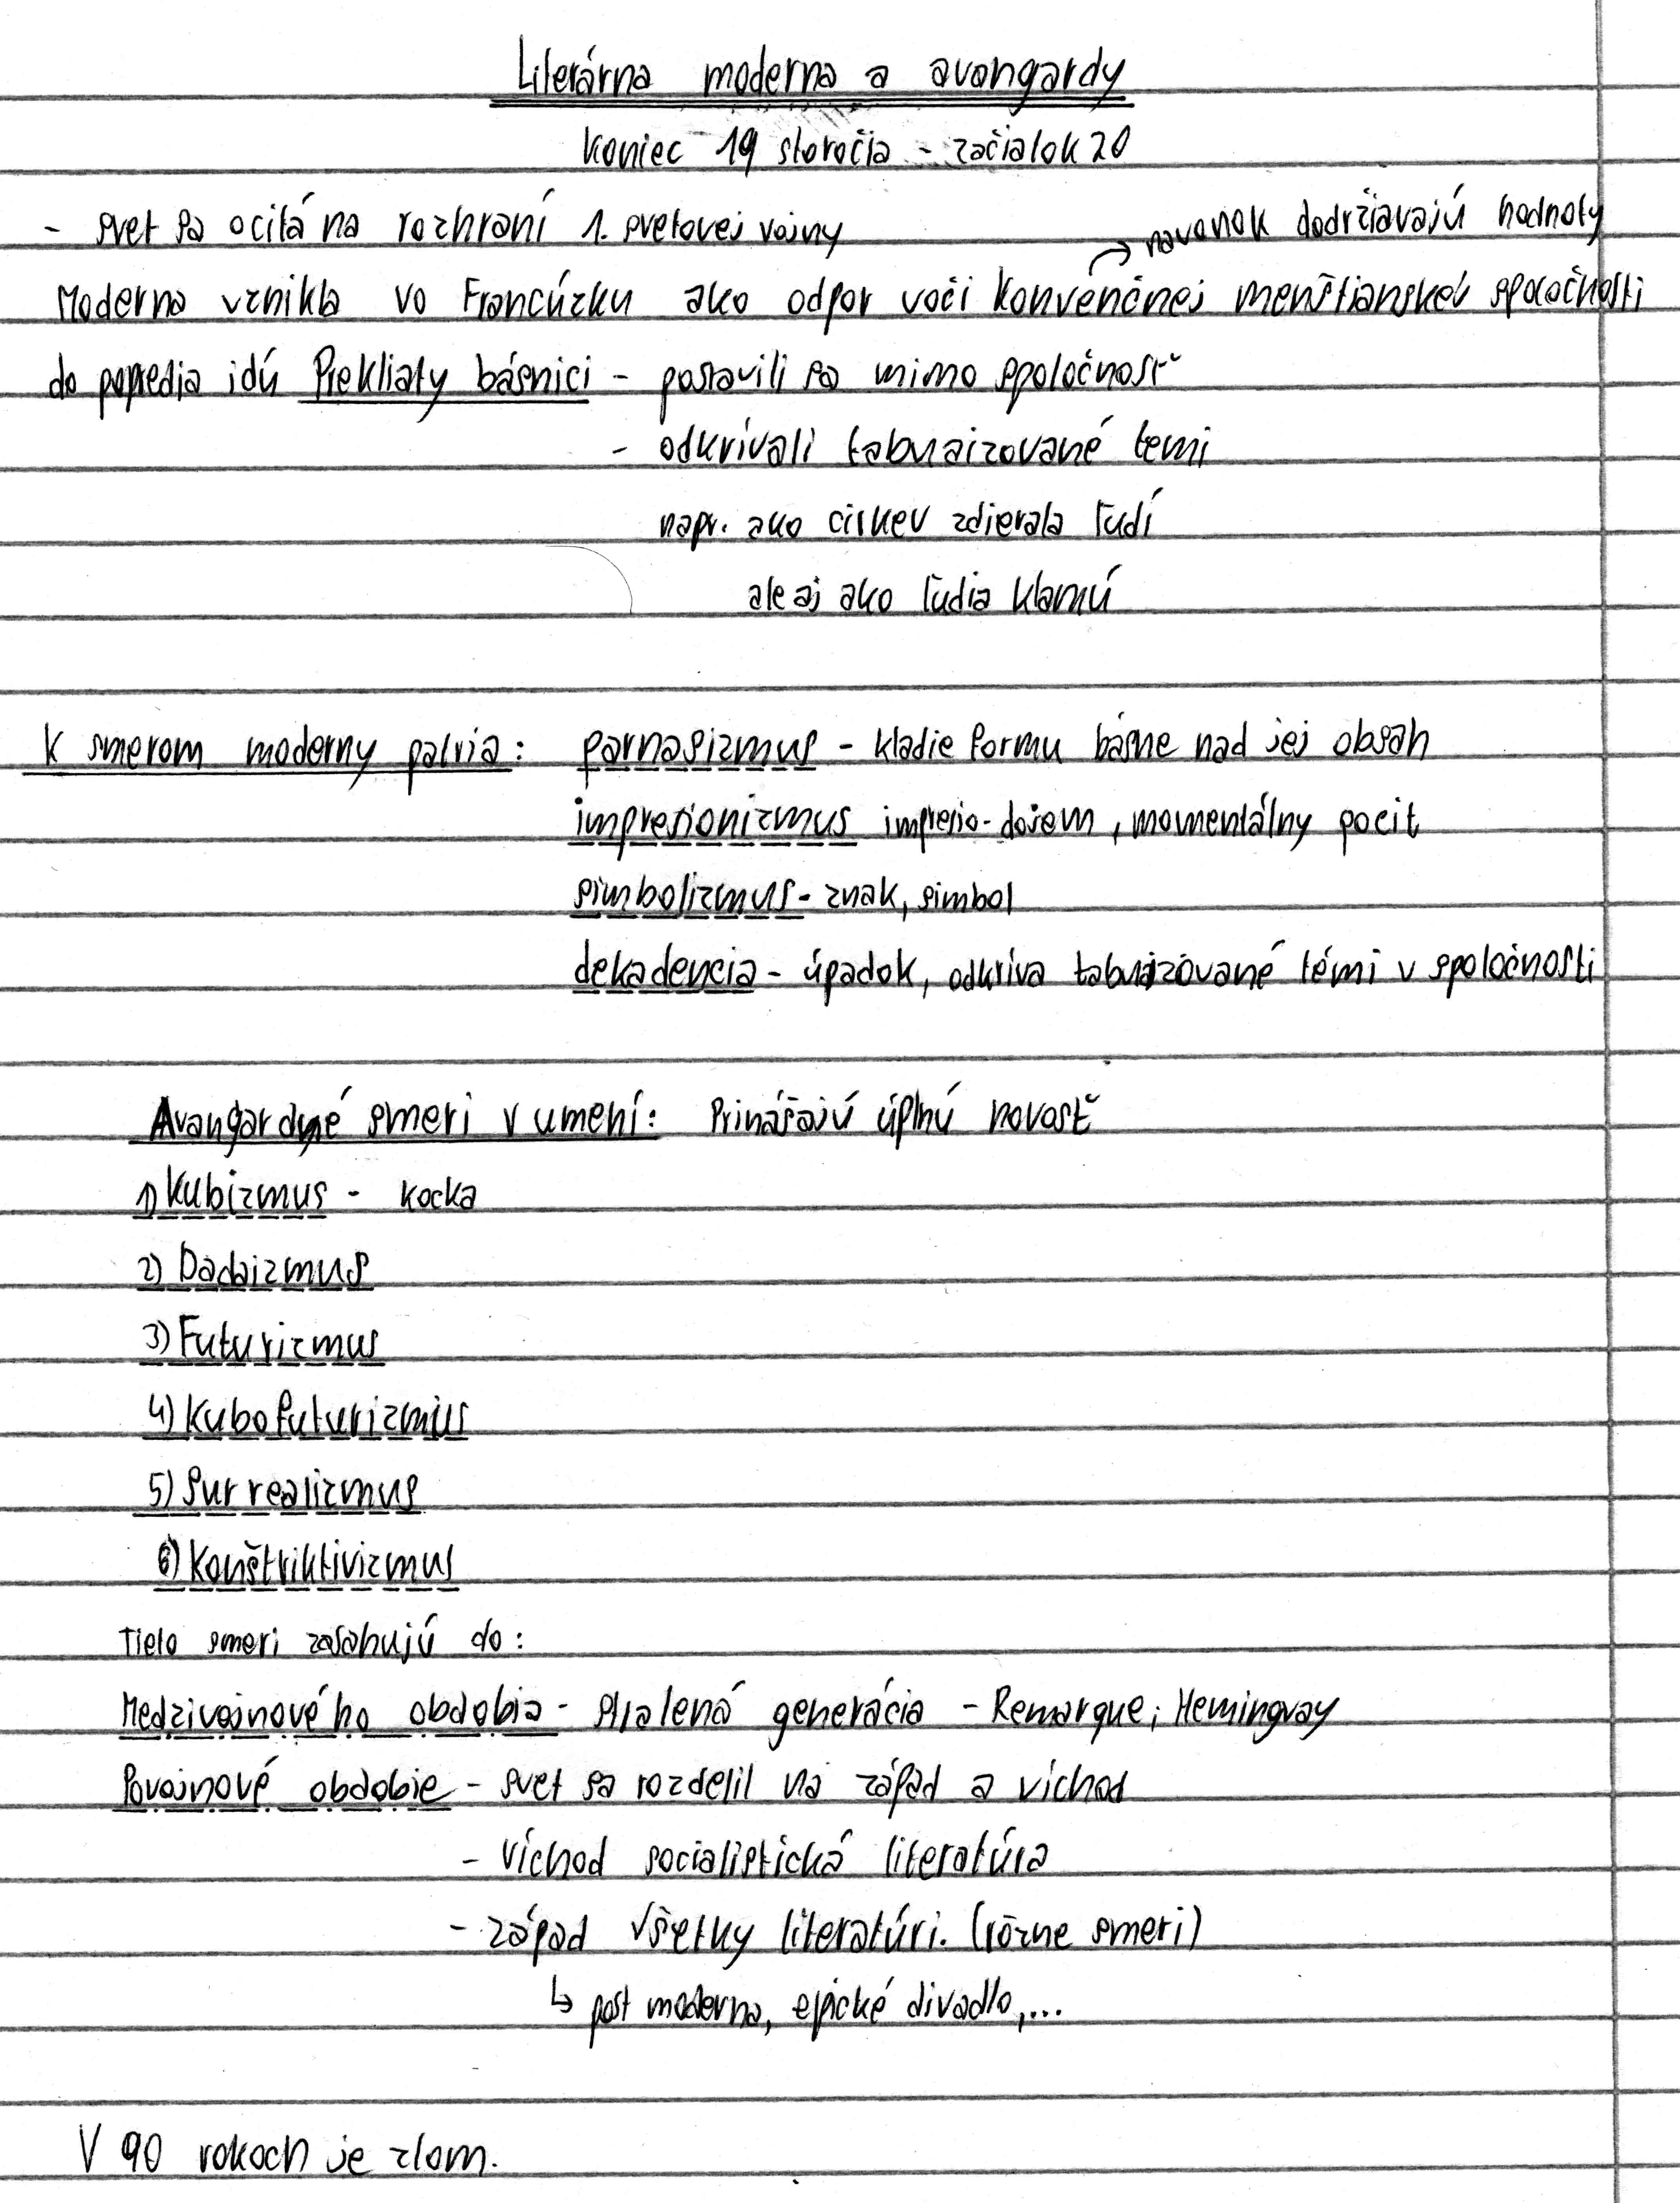 Literárna moderna a avangardy
koniec 19 storočia - začiatok 20
- svet sa ocitá na rozhraní 1. svetovej vojny
→ navonok dodržiavajú hodnoty
Moderna vznikla vo Francúzku ako odpor voči konvenčnej menštianskej spoločnosti
do popredia idú Prekliaty básnici - postavili sa mimo spoločnosť
- odkrívali tabuaizované temi
napr. ako cirkev zdierala ľudí
ale aj ako ľudia klamú
K smerom moderny patria: parnasizmus - kladie formu básne nad jej obsah
impresionizmus impresio-dojem, momentálny pocit
simbolizmus - znak, simbol
dekadencia - úpadok, odkriva tabuizované témi v spoločnosti
Avangardné smeri v umení: Prinášajú úplnú novosť
1) Kubizmus - kocka
2) Dadaizmus
3) Futurizmus
4) Kubofuturizmus
5) Surrealizmus
6) Konštriktivizmus
Tieto smeri zasahujú do:
Medzivojnového obdobia - stratená generácia - Remarque, Hemingvay
Povojnové obdobie - svet sa rozdelil na západ a víchod
- víchod socialistická literatúra
- západ všetky literatúri. (rôzne smeri)
↳ post moderna, epické divadlo,...
V 90 rokoch je zlom.